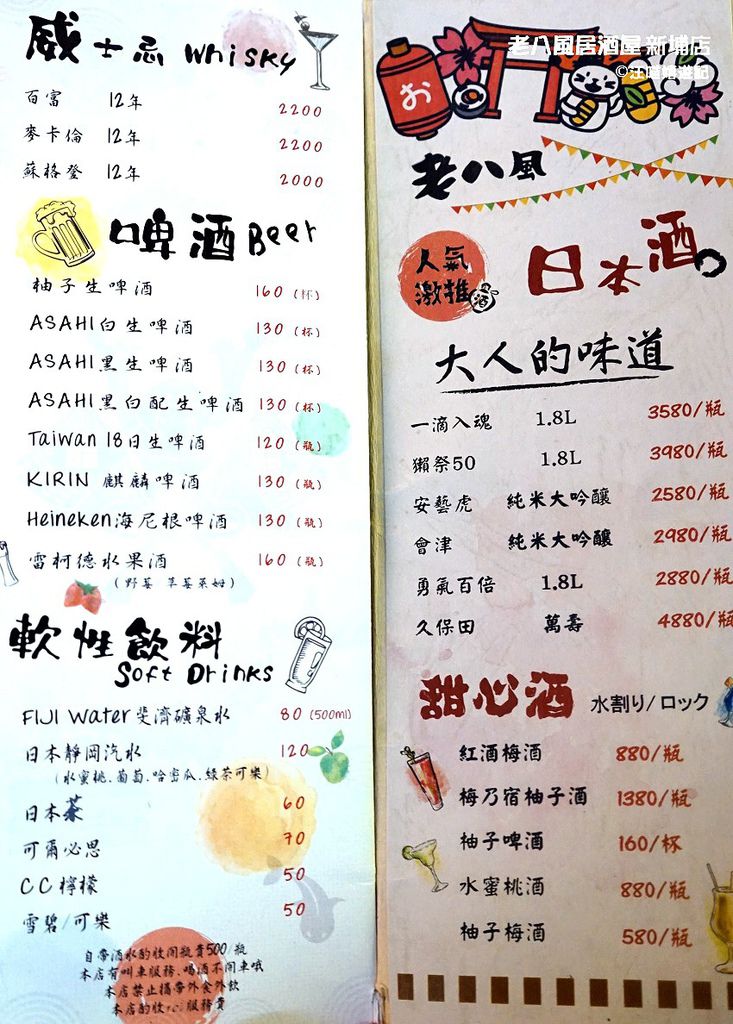 威士忌 Whisky
百富 12年 2200
麥卡倫 12年 2200
蘇格登 12年 2000
啤酒 Beer
柚子生啤酒 160（杯）
ASAHI白生啤酒 130（杯）
ASAHI黑生啤酒 130（杯）
ASAHI黑白配生啤酒 130（杯）
Taiwan 18日生啤酒 120（瓶）
KIRIN 麒麟啤酒 130（瓶）
Heineken海尼根啤酒 130（瓶）
雷柯德水果酒 160（瓶）
（野莓 草莓萊姆）
軟性飲料
Soft Drinks
FIJI Water斐濟礦泉水 80（500ml）
日本靜岡汽水 120
（水蜜桃、葡萄、哈密瓜、綠茶可樂）
日本茶 60
可爾必思 70
CC檸檬 50
雪碧/可樂 50
自帶酒水酌收開瓶費500/瓶
本店有叫車服務、喝酒不開車哦
本店禁止攜帶外食外飲
本店酌收 服務費
老八風居酒屋 新埔店
©汪晴嬉遊記
お
老八風
人氣
激推
酒
日本酒
大人的味道
一滴入魂 1.8L 3580/瓶
獺祭50 1.8L 3980/瓶
安藝虎 純米大吟釀 2580/瓶
會津 純米大吟釀 2980/瓶
勇氣百倍 1.8L 2880/瓶
久保田 萬壽 4880/瓶
甜心酒 水割り/ロック
紅酒梅酒 880/瓶
梅乃宿柚子酒 1380/瓶
柚子啤酒 160/杯
水蜜桃酒 880/瓶
柚子梅酒 580/瓶